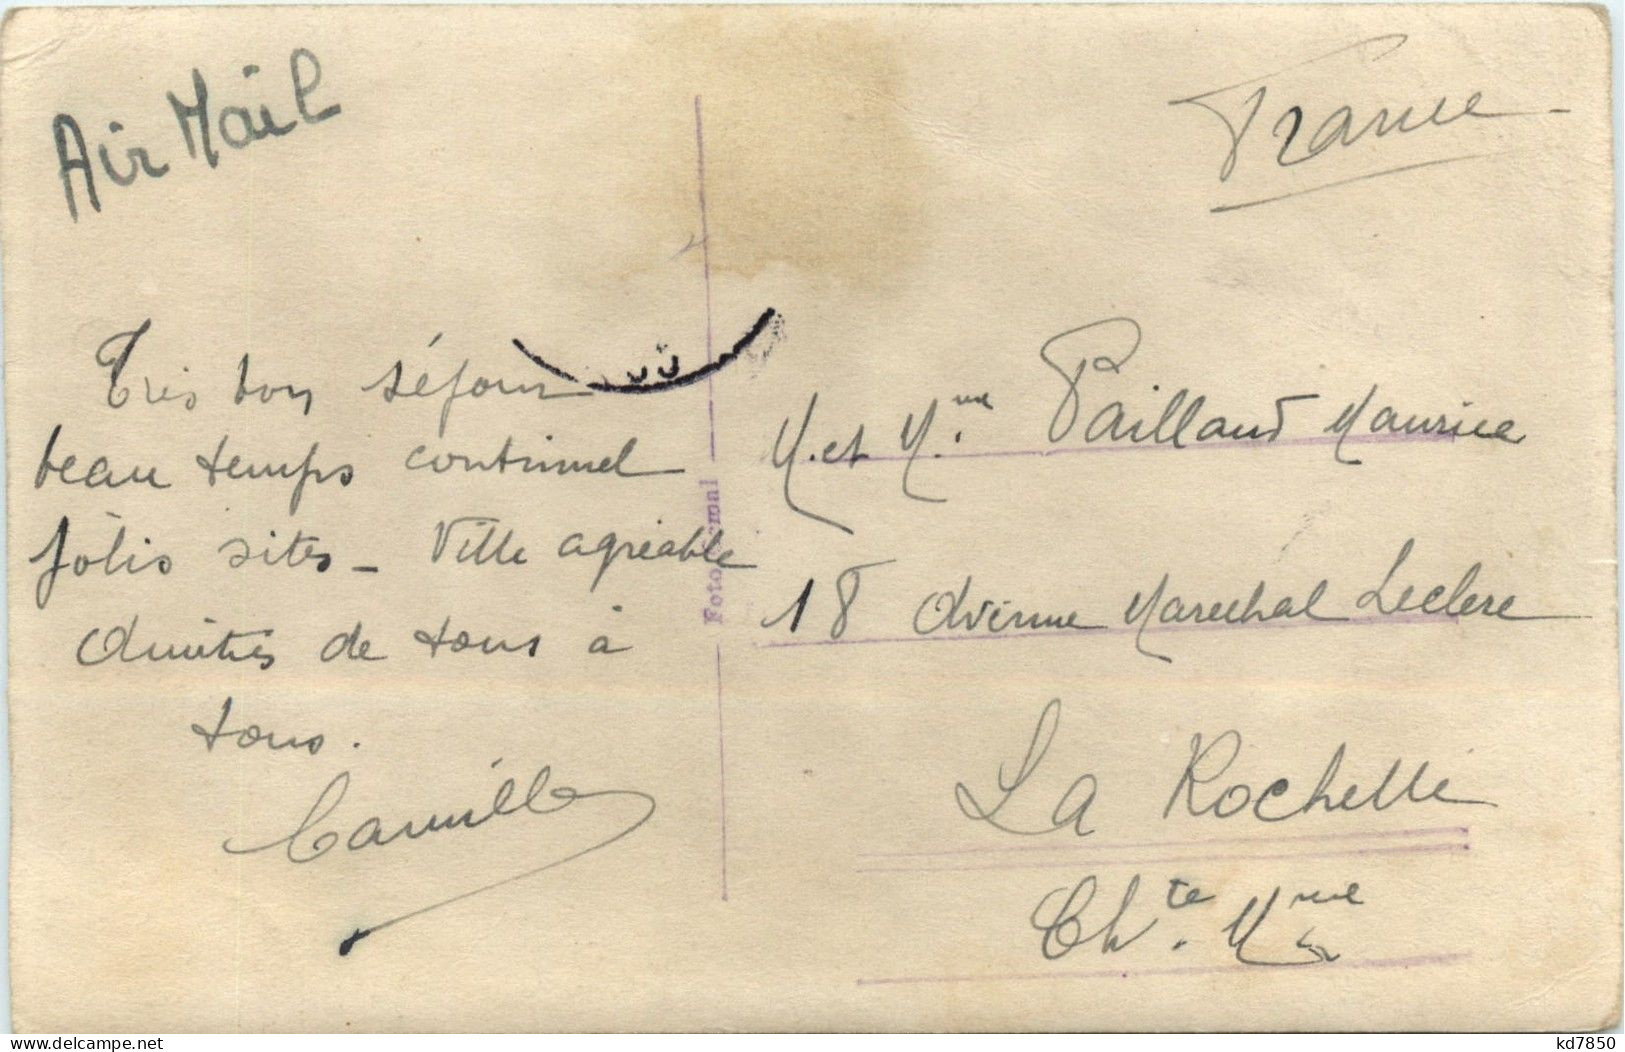 Air Mail
France
Très bon séjour
beau temps continuel
jolis sites - Ville agréable
Amitiés de tous à
tous.
Camille
M. et M.me Paillaud Maurice
18 Avenue Marechal Leclerc
La Rochelle
Ch.te Mme
Foto
delcampe.net
kd7850